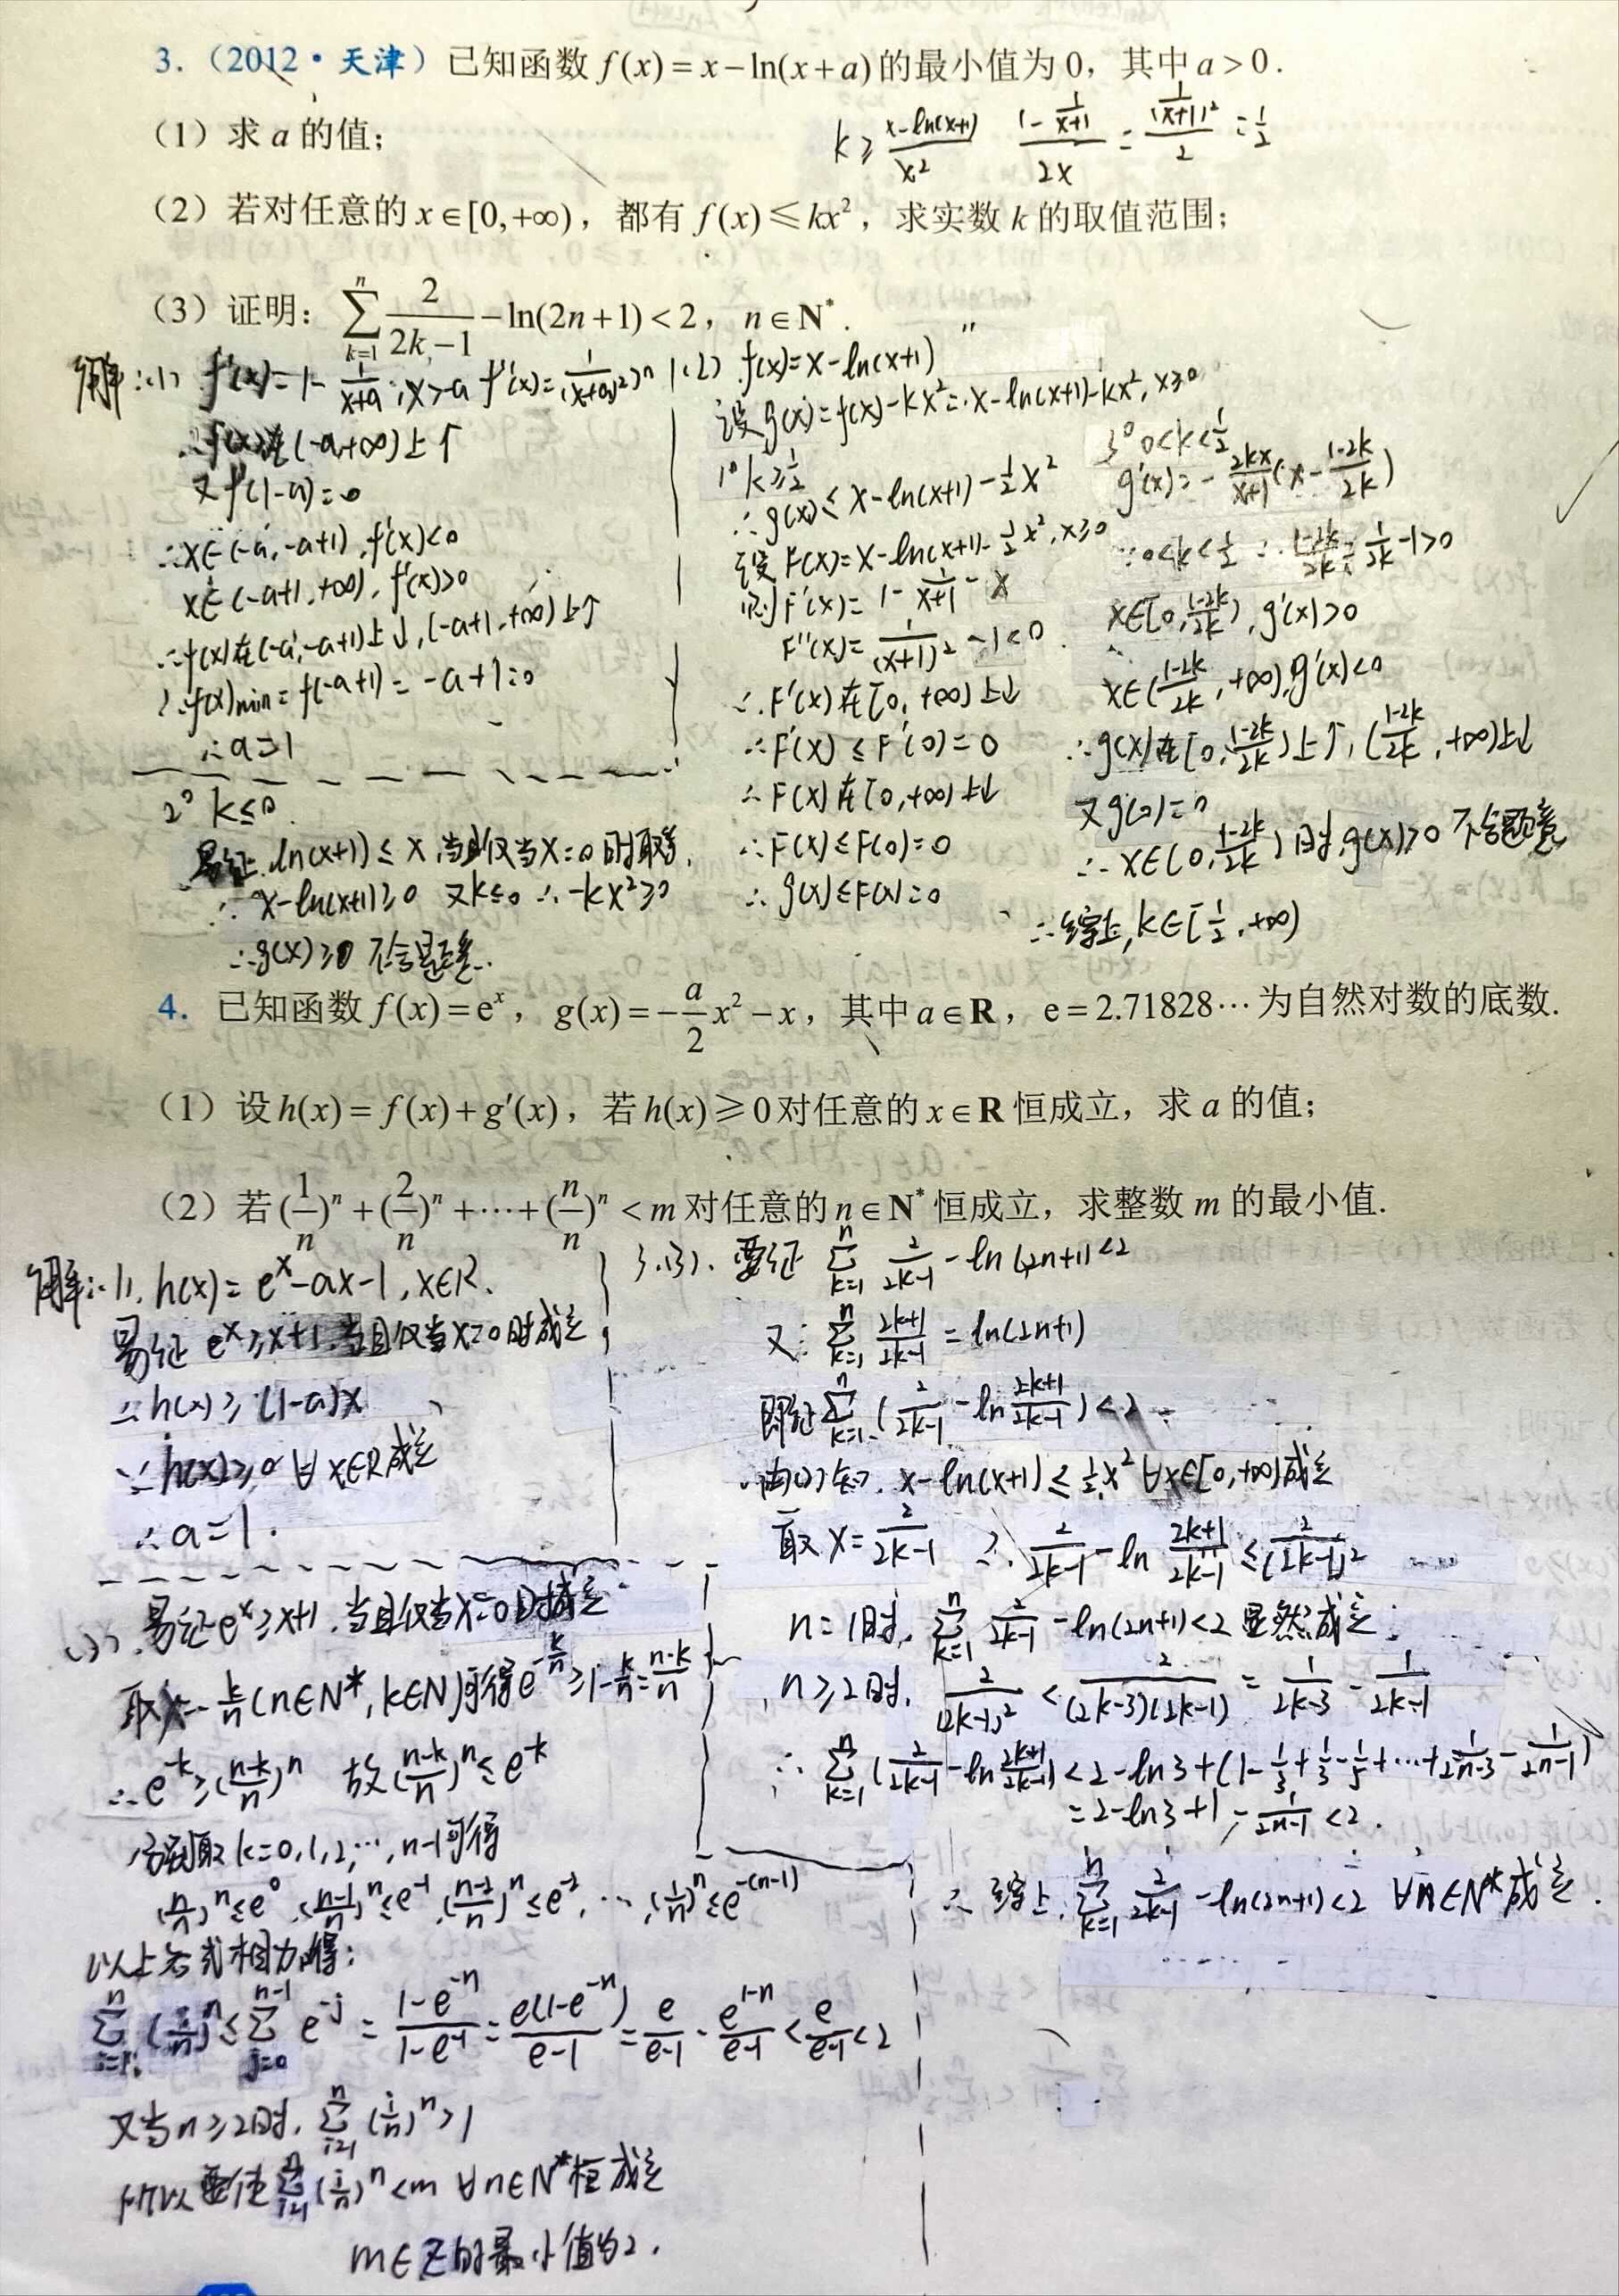 3.（2012·天津）已知函数 f(x)=x−ln(x+a)的最小值为 0，其中 a>0.
（1）求 a 的值；
k≥ (x-ln(x+1))/x² (1-1/(x+1))/2x = (1/(x+1)²)/2 = 1/2
（2）若对任意的 x∈[0,+∞)，都有 f(x)≤kx²，求实数 k 的取值范围；
（3）证明：∑_{k=1}^{n} 2/(2k−1) −ln(2n+1)<2，n∈N*.
解:(1) f'(x)=1-1/(x+a), x>-a f''(x)=1/(x+a)²>0
∴f'(x)在(-a,+∞)上↑
又f'(1-a)=0
∴x∈(-a,-a+1),f'(x)<0
x∈(-a+1,+∞),f'(x)>0
∴f(x)在(-a,-a+1)上↓,(-a+1,+∞)上↑
∴f(x)min=f(-a+1)=-a+1=0
∴a=1
(2) f(x)=x-ln(x+1)
设g(x)=f(x)-kx²=x-ln(x+1)-kx²,x≥0
1° k≥1/2
∴g(x)≤x-ln(x+1)-1/2x²
设F(x)=x-ln(x+1)-1/2x²,x≥0
则F'(x)=1-1/(x+1)-x
F''(x)=1/(x+1)²-1<0
∴F'(x)在[0,+∞)上↓
∴F'(x)≤F'(0)=0
∴F(x)在[0,+∞)上↓
∴F(x)≤F(0)=0
∴g(x)≤F(x)=0
2° k≤0
易证ln(x+1)≤x,当且仅当x=0时取等.
∴x-ln(x+1)≥0 又k≤0 ∴-kx²≥0
∴g(x)≥0 不合题意.
3° 0<k<1/2
g'(x)=-2kx/(x+1)(x-(1-2k)/2k)
∵0<k<1/2 ∴(1-2k)/2k=1/2k-1>0
x∈[0,(1-2k)/2k),g'(x)>0
x∈((1-2k)/2k,+∞),g'(x)<0
∴g(x)在[0,(1-2k)/2k)上↑,((1-2k)/2k,+∞)上↓
又g(0)=0
∴x∈(0,(1-2k)/2k)时,g(x)>0 不合题意
∴综上,k∈[1/2,+∞)
4. 已知函数 f(x)=eˣ，g(x)=−(a/2)x²−x，其中 a∈R，e=2.71828⋯为自然对数的底数.
（1）设 h(x)=f(x)+g′(x)，若 h(x)≥0 对任意的 x∈R 恒成立，求 a 的值；
（2）若 (1/n)ⁿ+(2/n)ⁿ+⋯+(n/n)ⁿ<m 对任意的 n∈N*恒成立，求整数 m 的最小值.
解:(1). h(x)=eˣ-ax-1,x∈R.
易证 eˣ≥x+1,当且仅当x=0时成立
∴h(x)≥(1-a)x
∵h(x)≥0 ∀x∈R成立
∴a=1.
(2). 易证eˣ≥x+1,当且仅当x=0时成立
取x=-k/n(n∈N*,k∈N)可得e^(-k/n)≥1-k/n=(n-k)/n
∴e^(-k)≥((n-k)/n)ⁿ 故((n-k)/n)ⁿ≤e^(-k)
分别取k=0,1,2,⋯,n-1可得
(n/n)ⁿ≤e⁰,((n-1)/n)ⁿ≤e^(-1),((n-2)/n)ⁿ≤e^(-2),⋯,(1/n)ⁿ≤e^(-(n-1))
以上各式相加得:
∑_{i=1}^{n}(i/n)ⁿ≤∑_{j=0}^{n-1}e^(-j)=(1-e^(-n))/(1-e^(-1))=e(1-e^(-n))/(e-1)=e/(e-1)-e^(1-n)/(e-1)<e/(e-1)<2
又当n≥2时,∑_{i=1}^{n}(i/n)ⁿ>1
所以要使∑_{i=1}^{n}(i/n)ⁿ<m ∀n∈N*恒成立
m∈Z的最小值为2.
3.(3). 要证 ∑_{k=1}^{n} 2/(2k-1)-ln(2n+1)<2
又∵∑_{k=1}^{n} (2k+1)/(2k-1)=ln(2n+1)
即证∑_{k=1}^{n}(2/(2k-1)-ln (2k+1)/(2k-1))<2
由(2)知,x-ln(x+1)≤1/2x² ∀x∈[0,+∞)成立
取x=2/(2k-1) ∴2/(2k-1)-ln (2k+1)/(2k-1)≤2/(2k-1)²
n=1时,∑_{k=1}^{n} 2/(2k-1)-ln(2n+1)<2 显然成立;
n≥2时, 2/(2k-1)²<2/((2k-3)(2k-1))=1/(2k-3)-1/(2k-1)
∴∑_{k=1}^{n}(2/(2k-1)-ln (2k+1)/(2k-1))<2-ln3+(1-1/3+1/3-1/5+⋯+1/(2n-3)-1/(2n-1))
=2-ln3+1-1/(2n-1)<2.
∴综上,∑_{k=1}^{n} 2/(2k-1)-ln(2n+1)<2 ∀n∈N*成立.